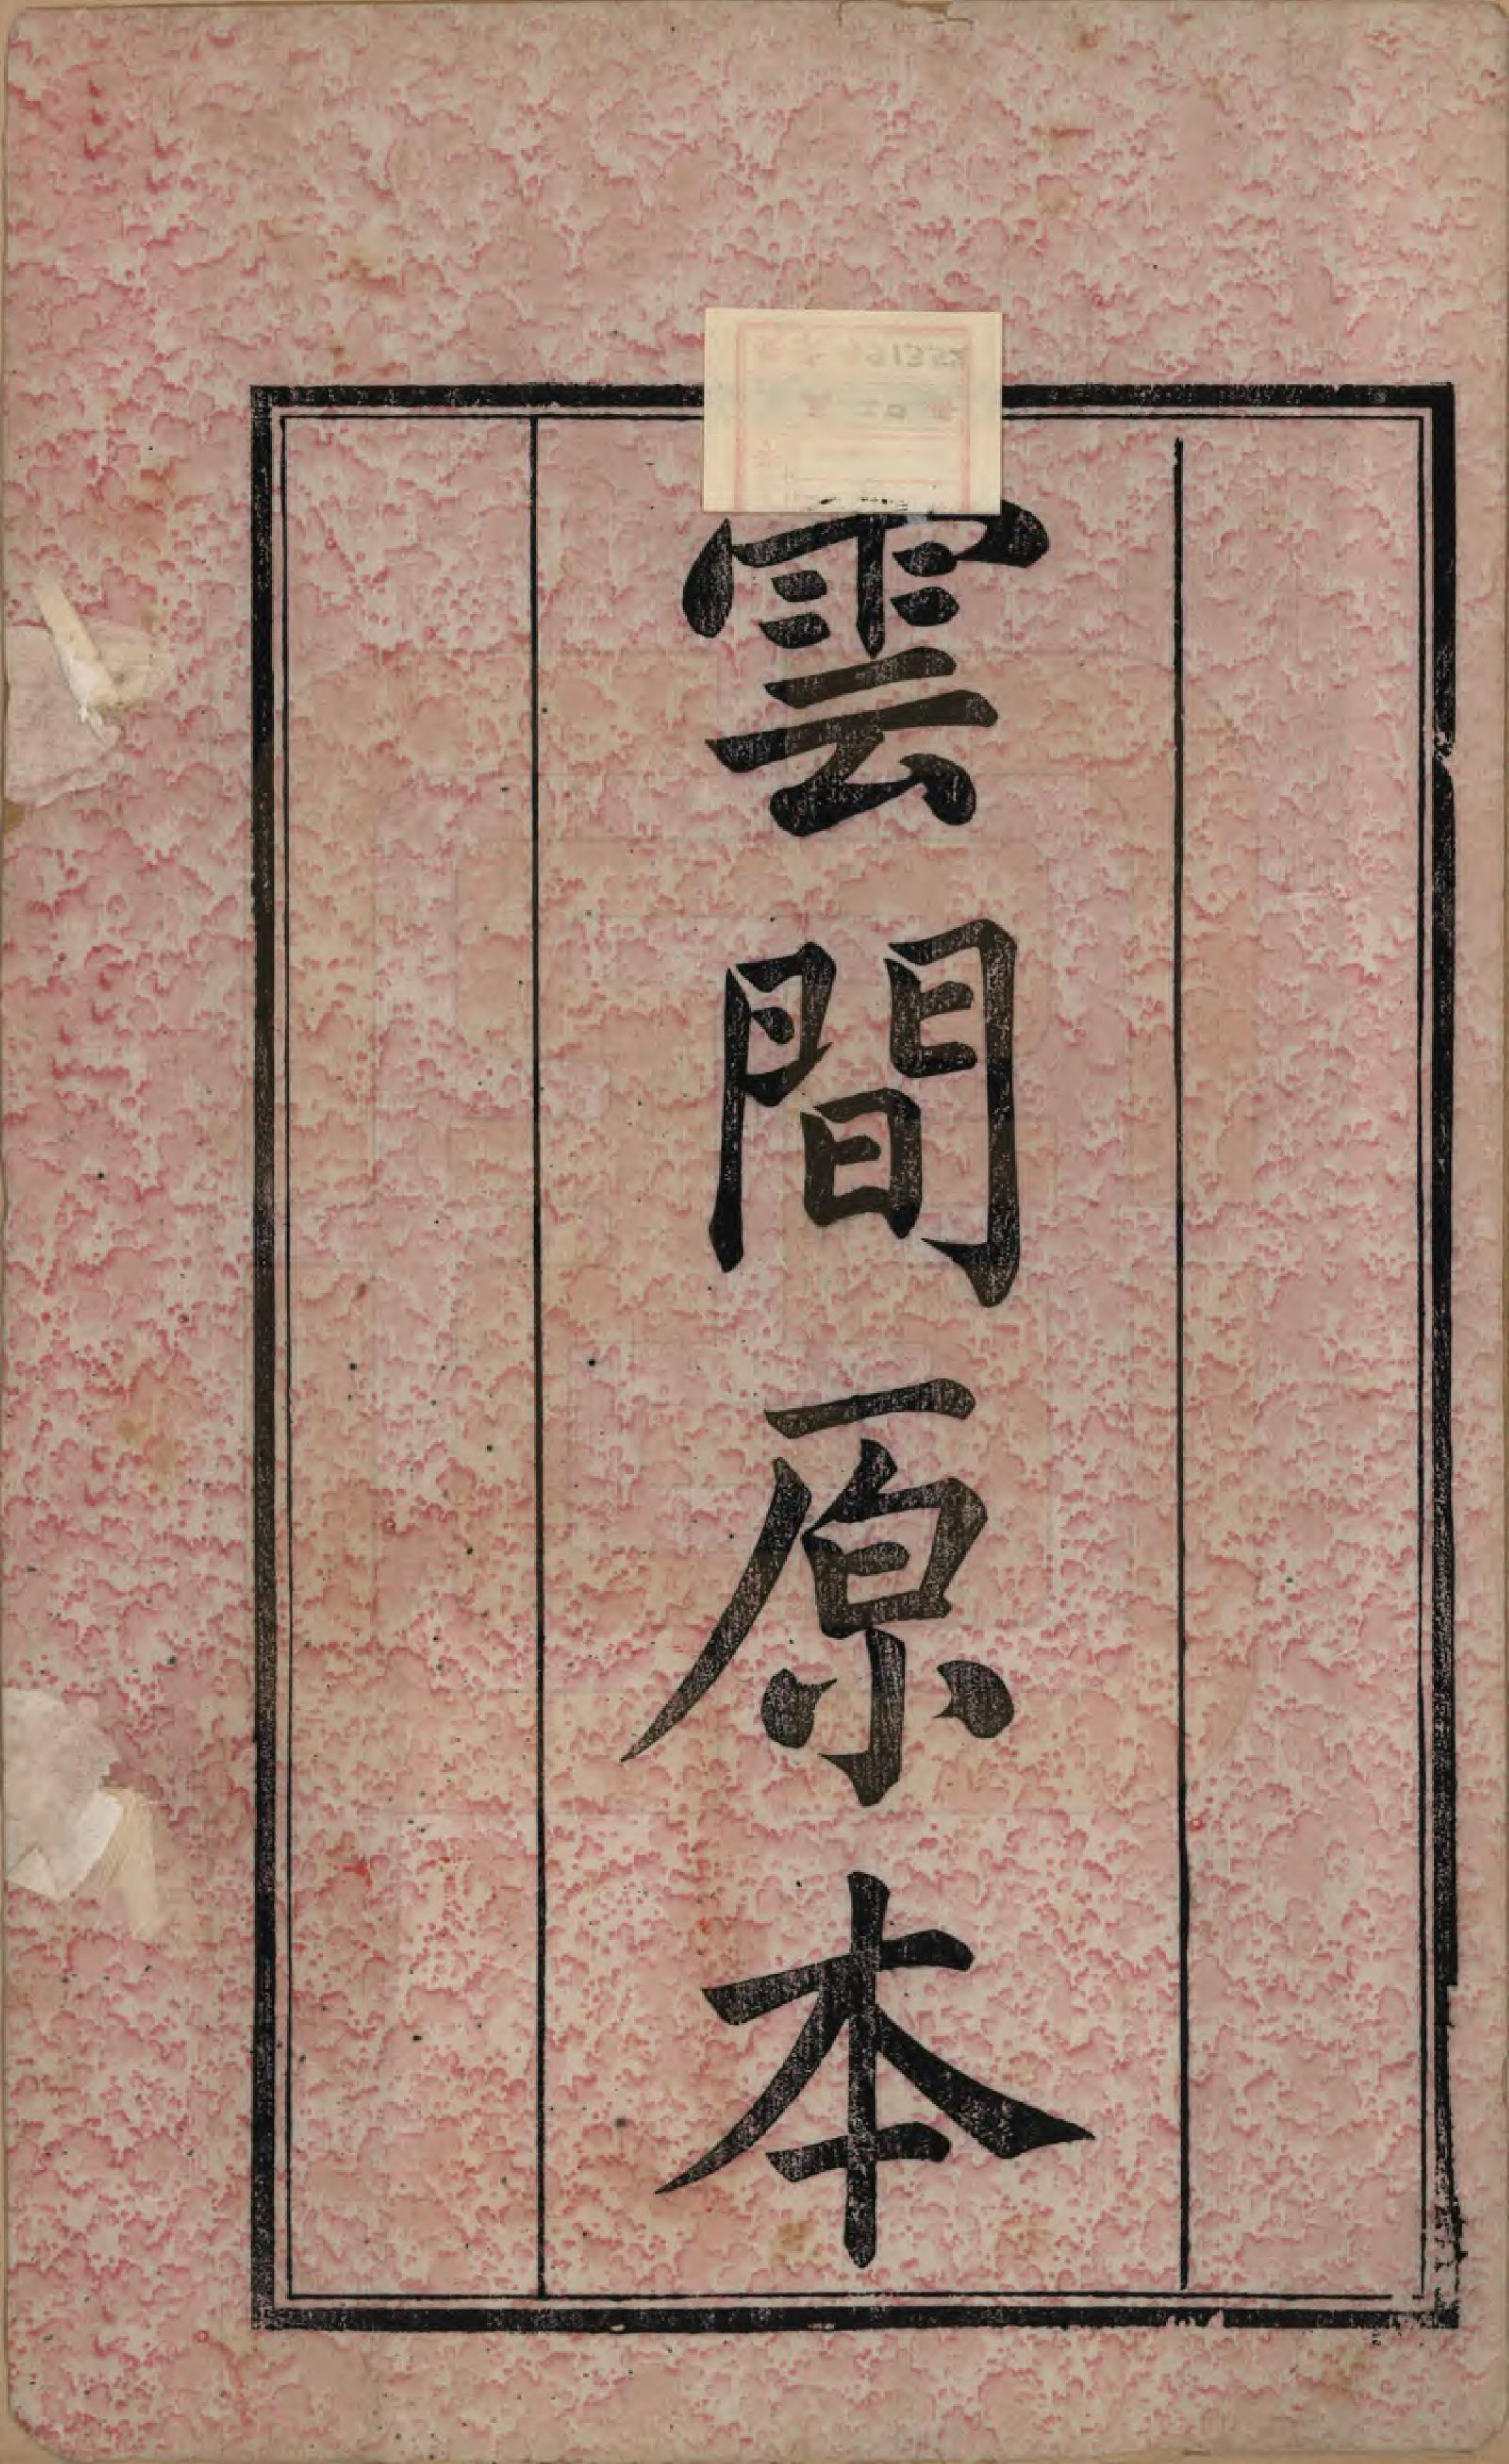 雲間原本